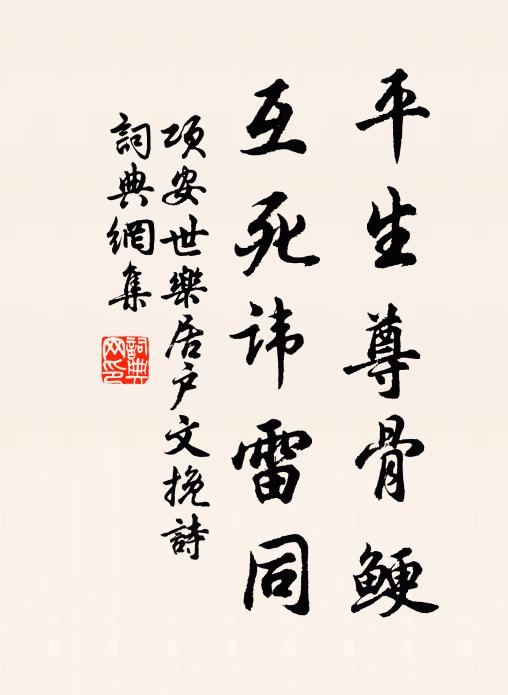 平生尊骨鲠
互死讳雷同
項安世樂居户文挽詩
詞典網集